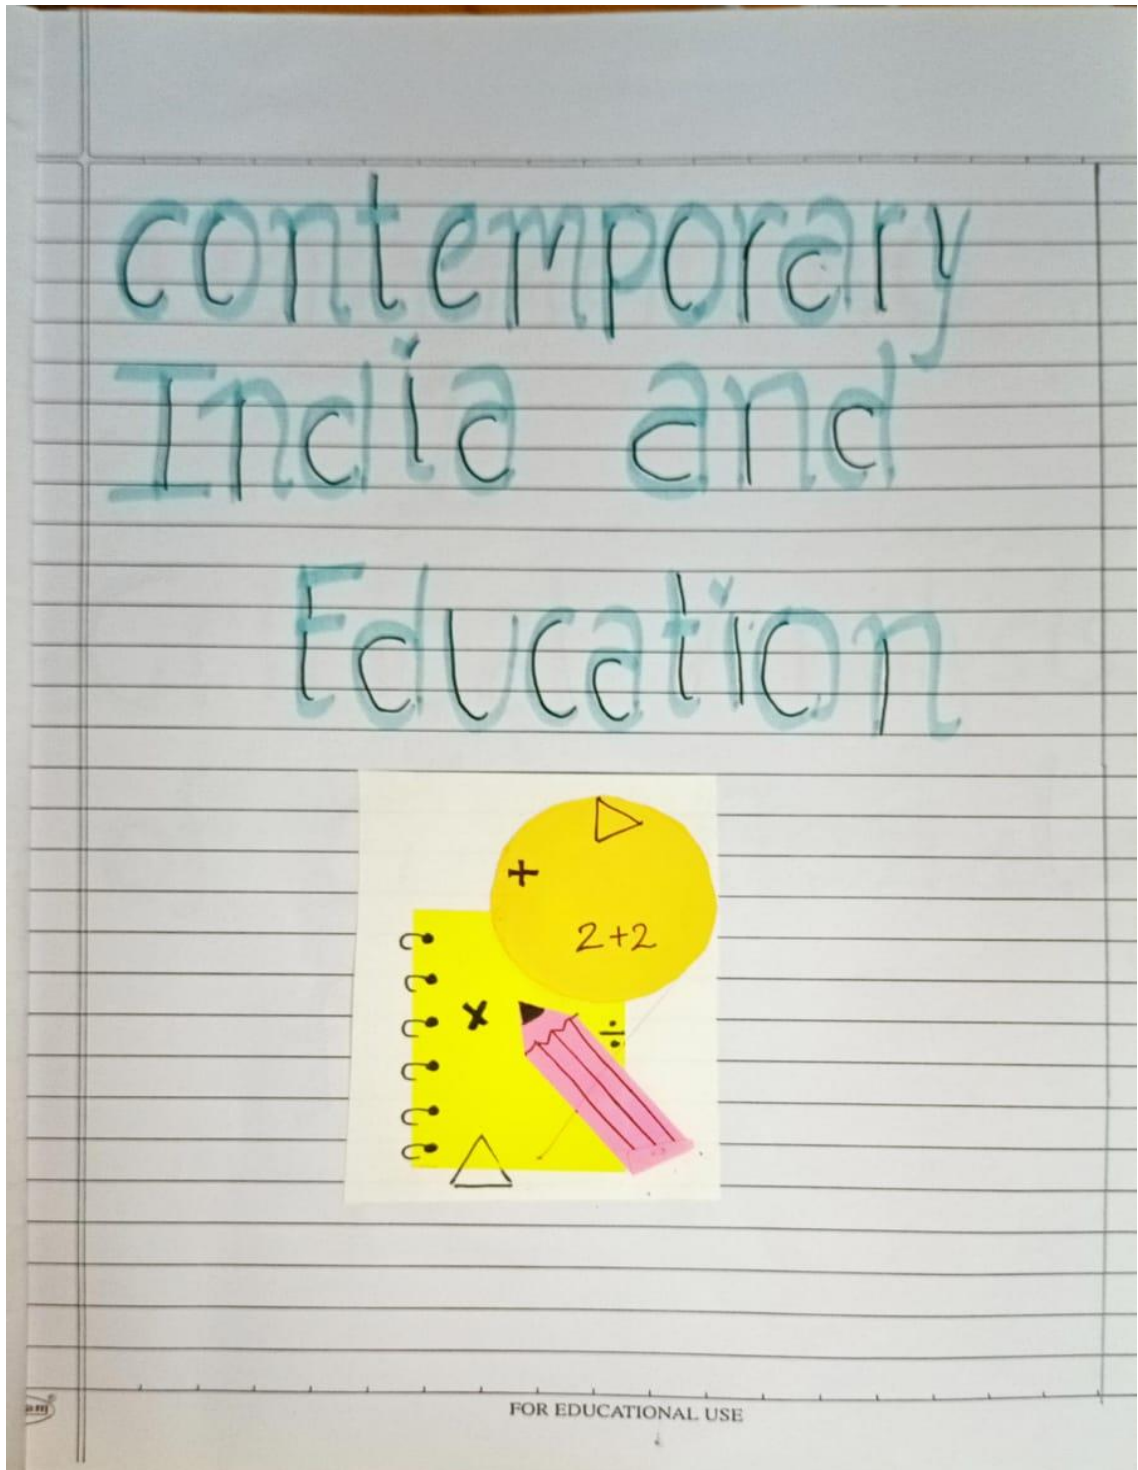 contemporary
India and
Education
+
2+2
×
÷
FOR EDUCATIONAL USE